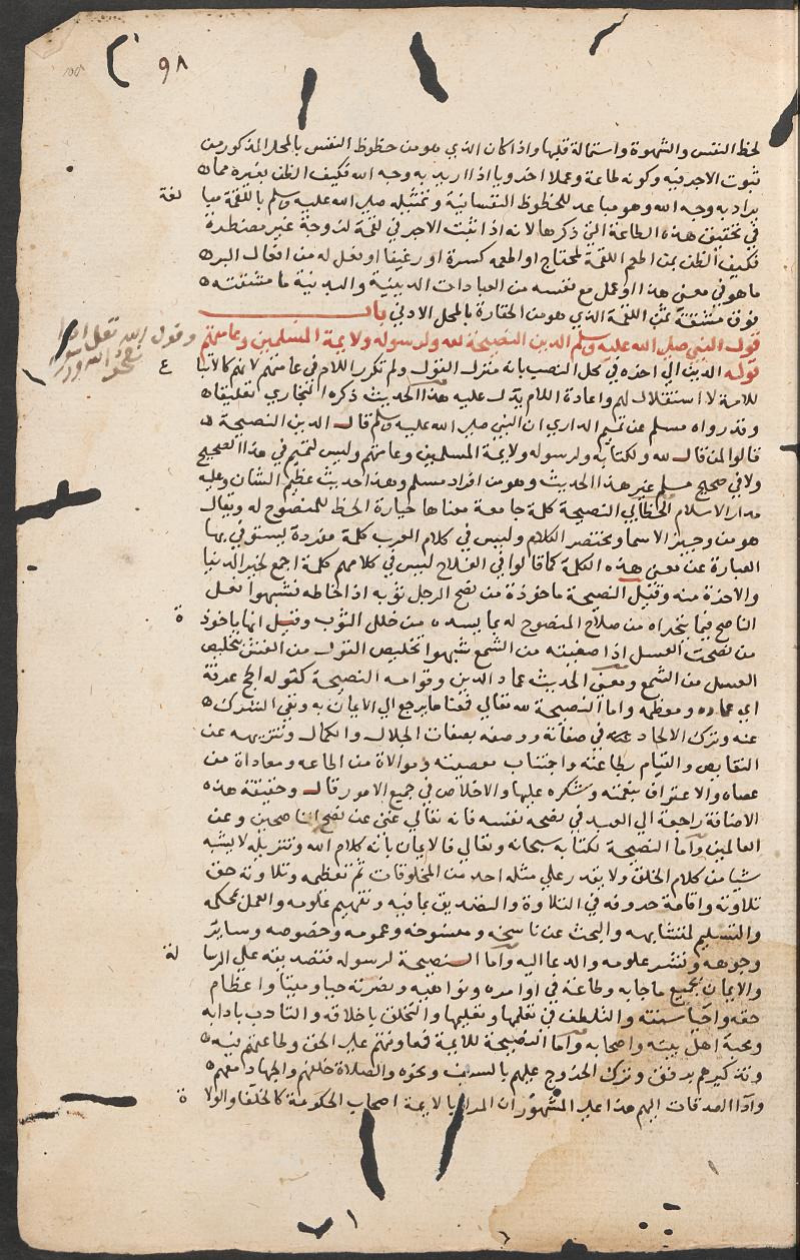 ٩٨
لحظ النفس والشهوة واستمالة قلبها واذا كان الذي هو من حظوظ النفس بالمحل المذكور من
ثبوت الاجر فيه وكونه طاعة وعملا اخرويا اذا اريد به وجه الله فكيف الظن بغيره مما
يراد به وجه الله وهو مباعد للحظوظ النفسانية وتمثيله صلى الله عليه وسلم باللقمة مبا لغة
في تحقيق هذه الطاعة التي ذكرها لانه اذا ثبت الاجر في لقمة لزوجة غير مضطرة
فكيف الظن بمن اطعم اللقمة لمحتاج او اطعمه كسرة او رغيفا او فعل له من افعال البر
ما هو في معنى هذا او عمل مع نفسه من العبادات الدينية والبدنية ما مشقته
فوق مشقة ثمن اللقمة الذي هو من الحقارة بالمحل الادني باب
قول النبي صلى الله عليه وسلم الدين النصيحة لله ولرسوله ولايمة المسلمين وعامتهم
وقول الله تعالى اذا نصحوا لله ورسوله
قوله الدين الى اخره في محل النصب بانه مقول القول ولم تكرر اللام في عامتهم لانهم كالاتباع
للامة لا استقلال لهم واعادة اللام يدل عليه هذا الحديث ذكره البخاري تعليقا
وقد رواه مسلم عن تميم الداري ان النبي صلى الله عليه وسلم قال الدين النصيحة
قالوا لمن قال لله ولكتابه ولرسوله ولايمة المسلمين وعامتهم وليس لتميم في هذا الصحيح
ولا في صحيح مسلم غير هذا الحديث وهو من افراد مسلم وهذا حديث عظيم الشان وعليه
مدار الاسلام الخطابي النصيحة كلمة جامعة معناها حيازة الحظ للمنصوح له ويقال
هو من وجيز الاسما ومختصر الكلام وليس في كلام العرب كلمة مفردة يستوفي بها
العبارة عن معنى هذه الكلمة كما قالوا في الفلاح ليس في كلامهم كلمة اجمع لخير الدنيا
والاخرة منه وقيل النصيحة ماخوذة من نصح الرجل ثوبه اذا خاطه فشبهوا فعل
الناصح فيما يتحراه من صلاح المنصوح له بما يسده من خلل الثوب وقيل انها ماخوذ ة
من نصحت العسل اذا صفيته من الشمع شبهوا تخليص القول من الغش بتخليص
العسل من الشمع ومعنى الحديث عماد الدين وقوامه النصيحة كقوله الحج عرفة
اي عماده ومعظمه واما النصيحة لله تعالي فمعناها يرجع الي الايمان به ونفي الشرك
عنه وترك الالحاد في صفاته ووصفه بصفات الجلال والكمال وتنزيهه عن
النقايص والقيام بطاعته واجتناب معصيته وموالاة من اطاعه ومعاداة من
عصاه والاعتراف بنعمته وشكره عليها والاخلاص في جميع الامور قال وحقيقة هذه
الاضافة راجعة الي العبد في نصحه نفسه فانه تعالي غني عن نصح الناصحين وعن
العالمين واما النصيحة لكتابه سبحانه وتعالي فالايمان بانه كلام الله وتنزيله لا يشبه
شيا من كلام الخلق ولا يقدر علي مثله احد من المخلوقات ثم تعظيمه وتلاوته حق
تلاوته واقامة حروفه في التلاوة والتصديق بما فيه وتفهم علومه والعمل بمحكمه
والتسليم لمتشابهه والبحث عن ناسخه ومنسوخه وعمومه وخصوصه وساير
وجوهه ونشر علومه والدعا اليه واما النصيحة لرسوله فتصديقه علي الرسا لة
والايمان بجميع ما جا به وطاعته في اوامره ونواهيه ونصرته حيا وميتا واعظام
حقه واحيا سنته والتلطف في تعلمها وتعليمها والتخلق باخلاقه والتادب بادابه
ومحبة اهل بيته واصحابه واما النصيحة للايمة فمعاونتهم علي الحق وطاعتهم فيه
وتذكيرهم برفق وترك الخروج عليهم بالسيف ونحوه والصلاة خلفهم والجهاد معهم
واداا الصدقات اليهم هذا علي المشهور ان المراد بالايمة اصحاب الحكومة كالخلفا والولا ة